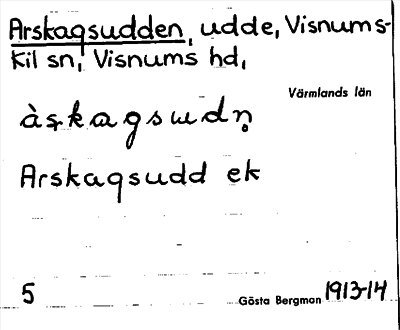 Arskagsudden, udde, Visnums-
Kil sn, Visnums hd,
Värmlands län
Arskagsudd ek
5
Gösta Bergman 1913-14